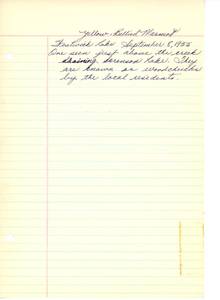 Yellow-Bellied Marmot
Lake September 8, 1955
One seen just above the creek
draining Sorenson Lake. They
are known as woodchucks
by the local residents.